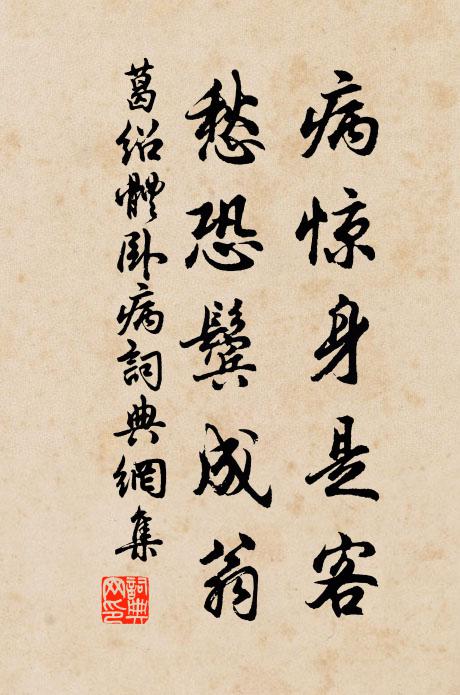 病惊身是客
愁恐鬓成翁
葛绍體卧病詞典網集
詞典